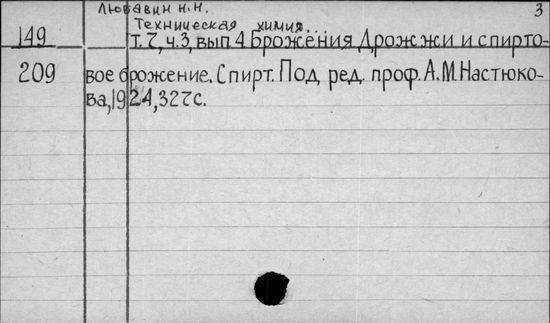 Любавин Н.Н. 3
Техническая химия...
149 Т.7, ч.3, вып 4 Брожения Дрожжи и спирто-
209 вое брожение. Спирт. Под ред. проф. А.М. Настюко-
ва, 1924, 327с.